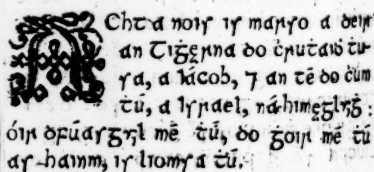 ACht a nois is marso a deir
an Tiġerna do ċrutaiḋ ṫu-
sa, a Iácob, ⁊ an té do ċum
ṫú, a Israel, ná himęgluiġ:
óir dfúasguil mé ṫú, do ġoir mé ṫú
as hainm, is liomsa ṫú.